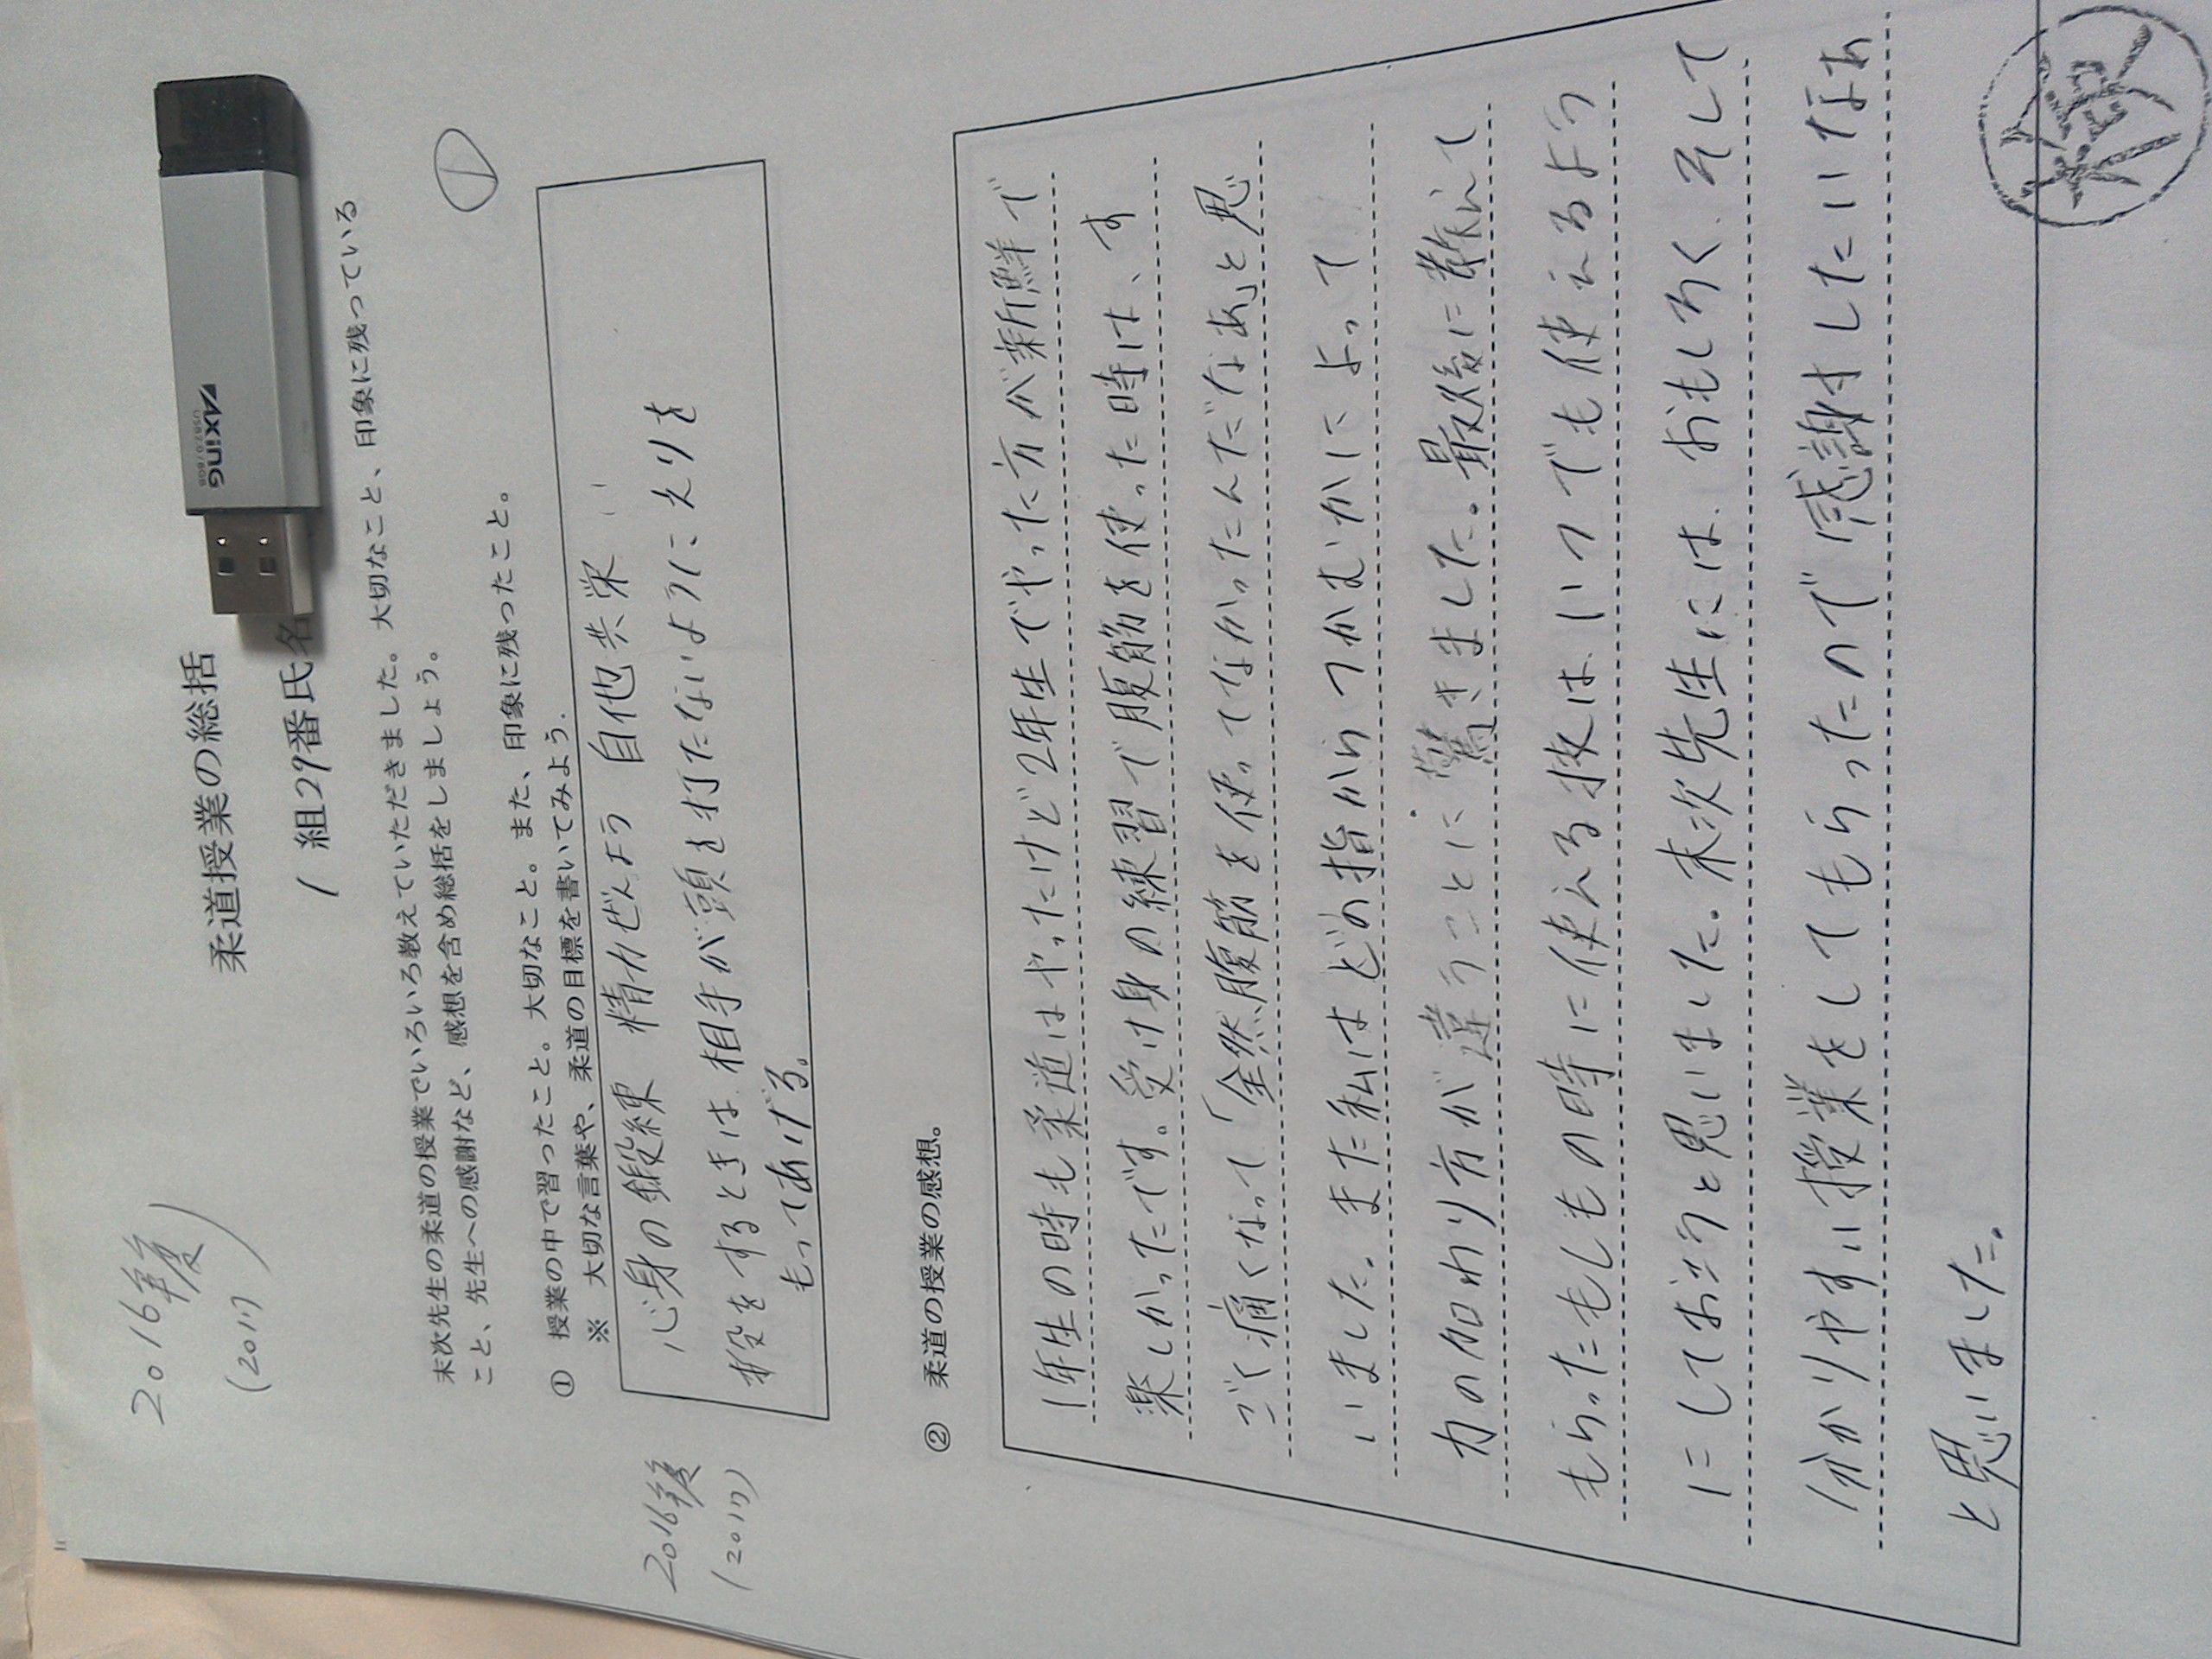 2016年度
(2017)
柔道授業の総括
1組29番氏名
AXiNG
USB2.0/8GB
末次先生の柔道の授業でいろいろ教えていただきました。大切なこと、印象に残っている
こと、先生への感謝など、感想を含め総括をしましょう。
①
① 授業の中で習ったこと。大切なこと。また、印象に残ったこと。
※ 大切な言葉や、柔道の目標を書いてみよう.
心身の鍛練 精力ぜんよう 自他共栄
投をするときは、相手が頭を打たないようにえりを
もってあげる。
2016年度
(2017)
② 柔道の授業の感想。
1年生の時も柔道はやったけど2年生でやった方が新鮮で
楽しかったです。受け身の練習で腹筋を使った時は、す
ごく痛くなって「全然腹筋を使ってなかったんだなあ」と思
いました。また私はどの指からつかむかによって
力の加わり方が違うことに驚きました。最後に教えて
もらったもしもの時に使える技は、いつでも使えるよう
にしておこうと思いました。末次先生には、おもしろく、そして
分かりやすい授業をしてもらったので感謝したいなあ
と思いました。